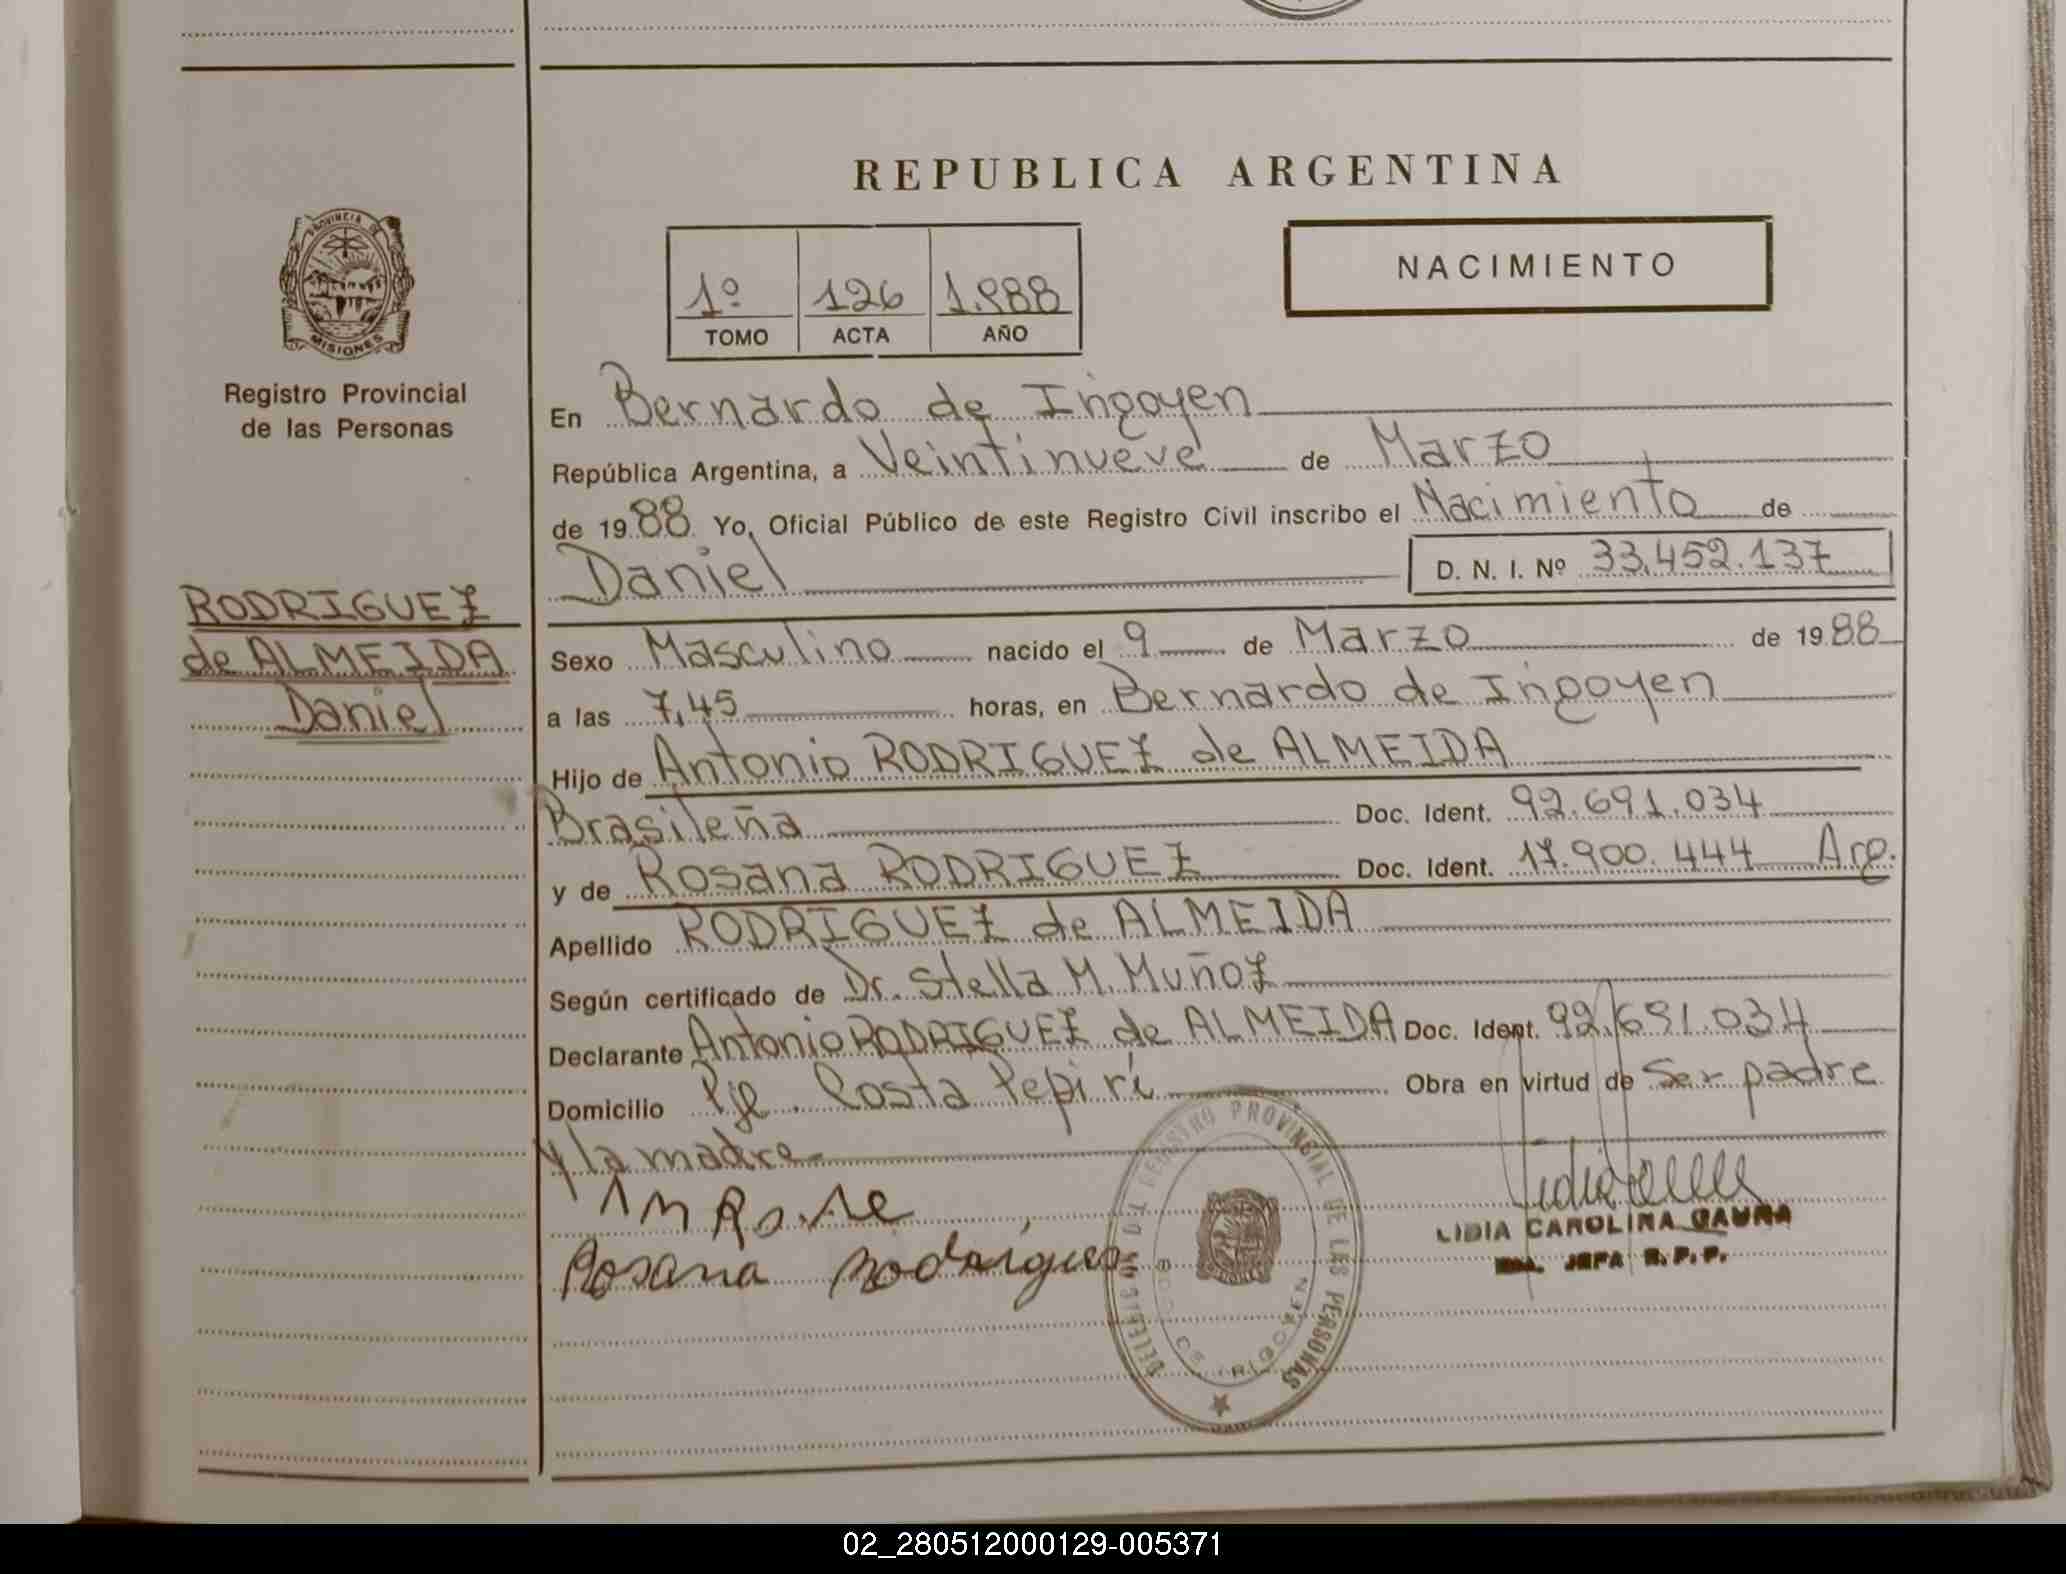 REPUBLICA ARGENTINA
PROVINCIA DE
MISIONES
Registro Provincial
de las Personas
1º 126 1.988
TOMO ACTA AÑO
NACIMIENTO
En Bernardo de Irigoyen
República Argentina, a Veintinueve de Marzo
de 19 88 Yo, Oficial Público de este Registro Civil inscribo el Nacimiento de
Daniel D. N. I. Nº 33.452.137
RODRIGUEZ
de ALMEIDA
Daniel
Sexo Masculino nacido el 9 de Marzo de 19 88
a las 7,45 horas, en Bernardo de Irigoyen
Hijo de Antonio RODRIGUEZ de ALMEIDA
Brasileña Doc. Ident. 92.691.034
y de Rosana RODRIGUEZ Doc. Ident. 17.900.444 Arg.
Apellido RODRIGUEZ de ALMEIDA
Según certificado de Dr. Stella M. Muñoz
Declarante Antonio RODRIGUEZ de ALMEIDA Doc. Ident. 92.691.034
Domicilio Pje. Costa Pepirí Obra en virtud de ser padre
y la madre
Rosana Rodrigues
LIDIA CAROLINA GAUNA
JEFA R.P.P.
DELEGACION DEL REGISTRO PROVINCIAL DE LAS PERSONAS
BDO. DE IRIGOYEN
02_280512000129-005371